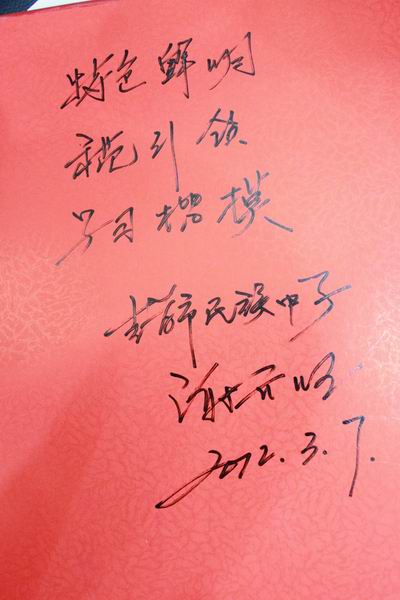 特色鲜明
示范引领
学习楷模
民族中学
2012.3.7.